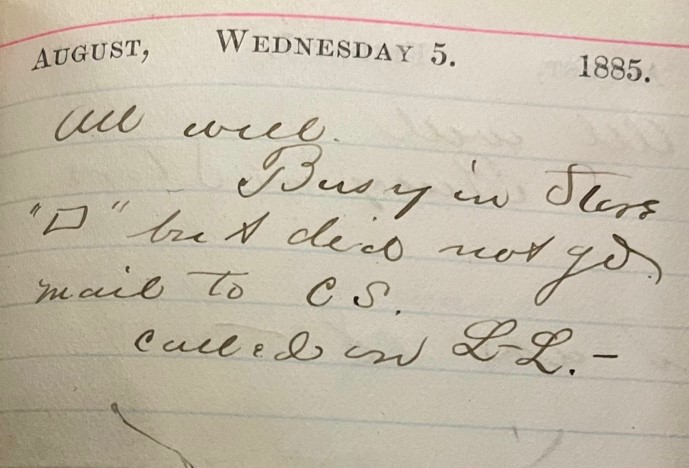 AUGUST, WEDNESDAY 5. 1885.
All well.
Busy in Store
"□" but did not go.
mail to C S.
called on L-L.-